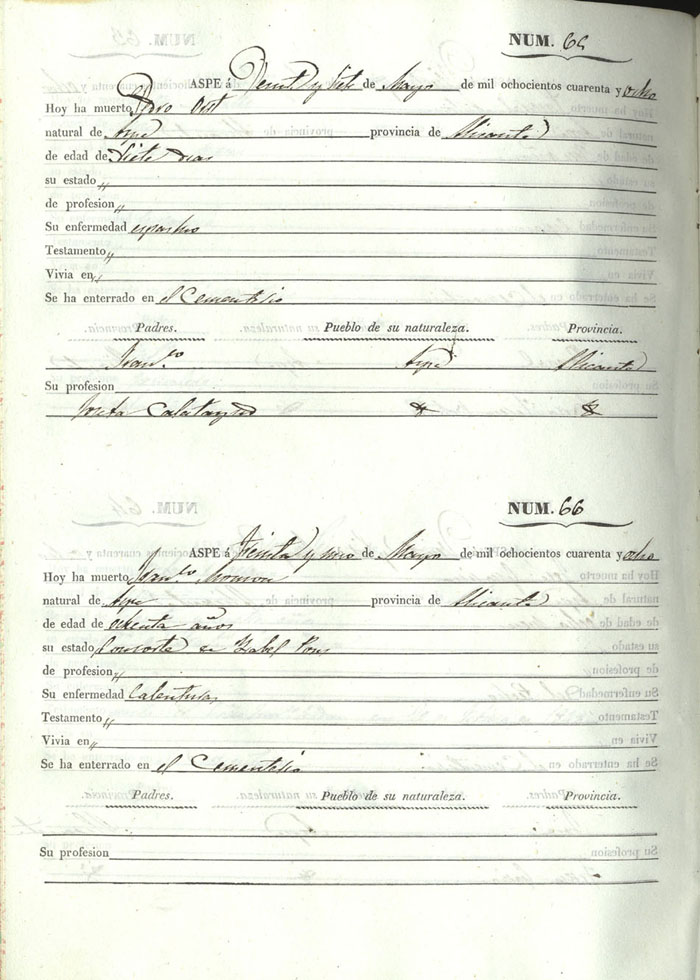 NUM. 65
ASPE á Veint. y siete de Mayo de mil ochocientos cuarenta y ocho
Hoy ha muerto Pedro
natural de Aspe provincia de Alicante
de edad de Siete dias
su estado "
de profesion "
Su enfermedad espasmo
Testamento "
Vivia en "
Se ha enterrado en el Cementerio
Padres. Pueblo de su naturaleza. Provincia.
Fran.co Aspe Alicante
Su profesion
Calatayud
NUM. 66
ASPE á Treinta y uno de Mayo de mil ochocientos cuarenta y ocho
Hoy ha muerto Fran.co
natural de Aspe provincia de Alicante
de edad de ochenta años
su estado Consorte en Isabel Pons
de profesion "
Su enfermedad Calenturas
Testamento "
Vivia en "
Se ha enterrado en el Cementerio
Padres. Pueblo de su naturaleza. Provincia.
Su profesion